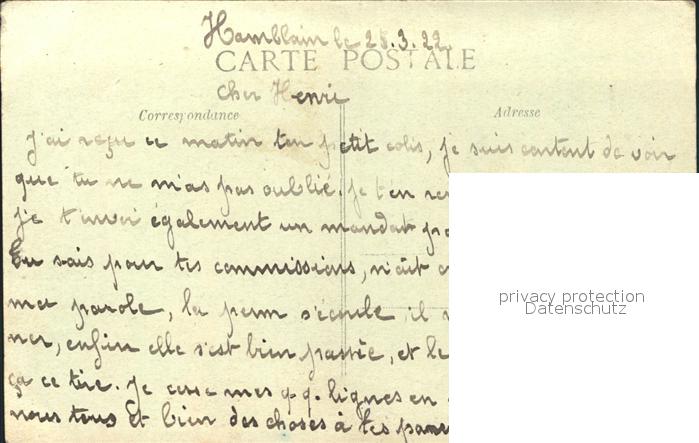 Hamblain le 28.3.22.
CARTE POSTALE
Cher Henri
Correspondance
Adresse
J'ai reçu ce matin ton petit colis, je suis content de voir
que tu ne m'as pas oublié. Je t'en
je t'envoi également un mandat
Tu sais pour tes commissions, n'ait
ma parole, la perm s'écoule il
ner, enfin elle s'est bien passée, et le
ça ce tire. Je cesse mes q.q. lignes en
nous tous et bien des choses à tes
privacy protection
Datenschutz